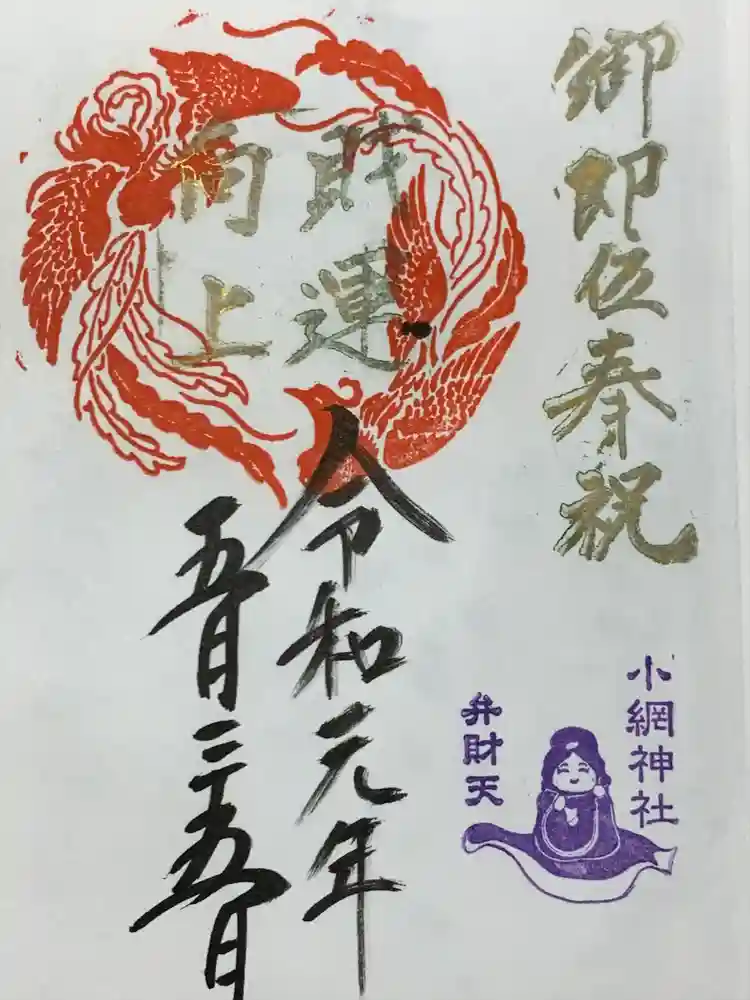 御即位奉祝
財運
向上
令和元年
五月二十五日
小網神社
弁財天